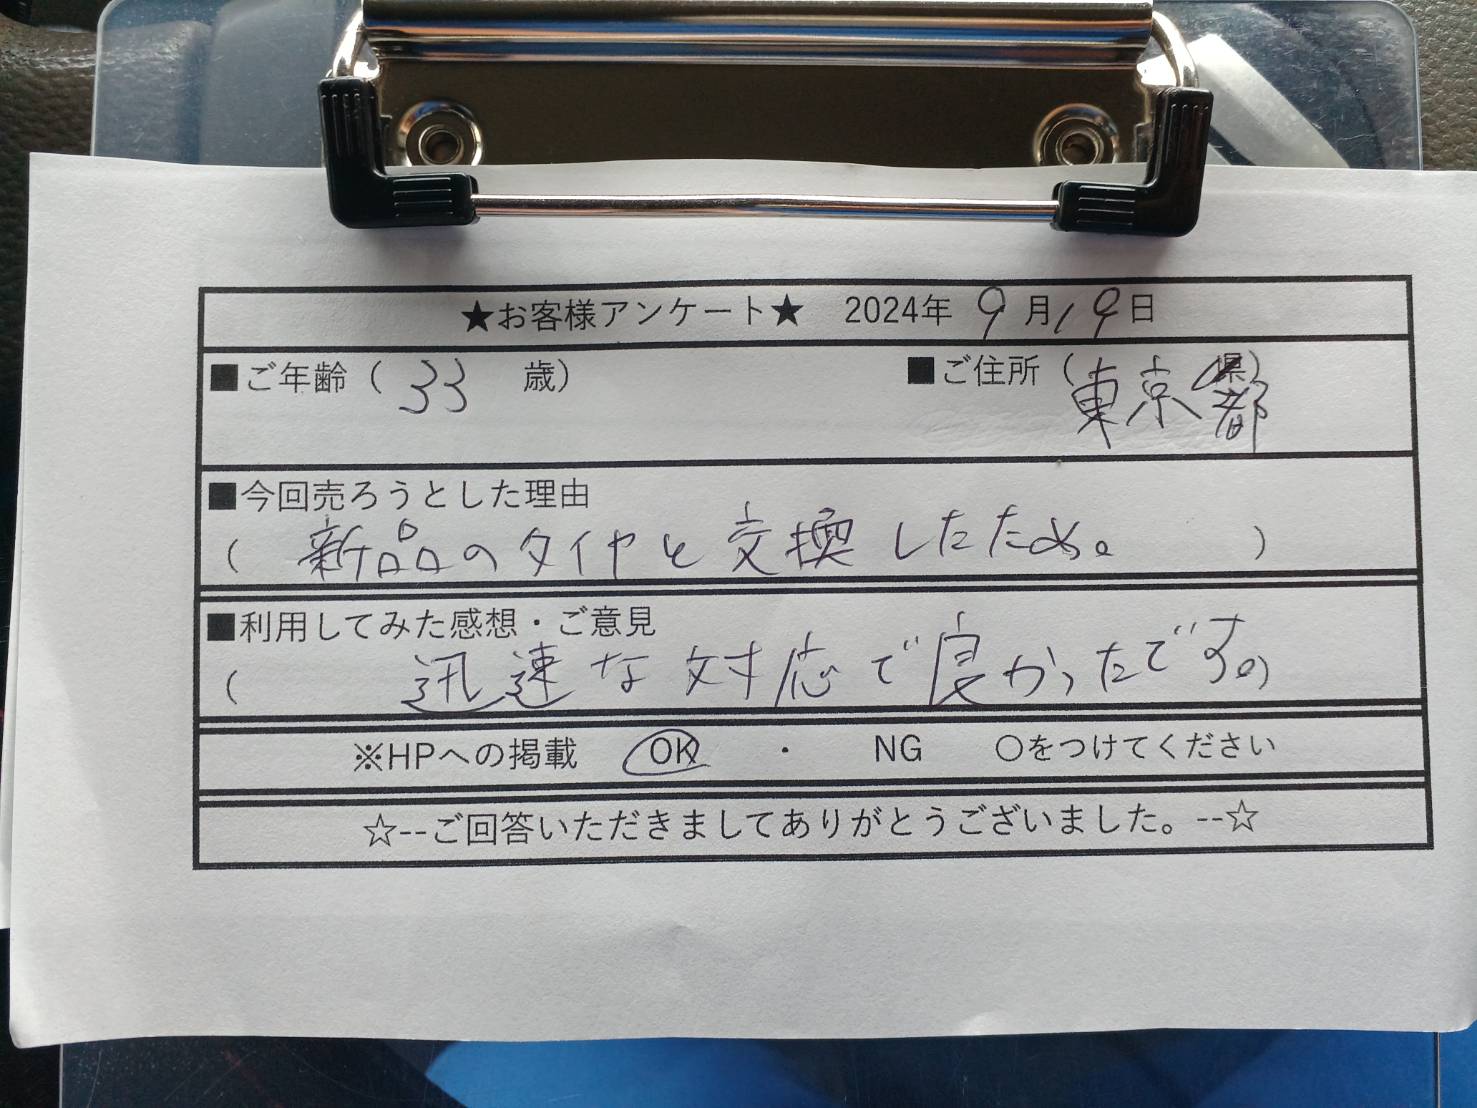 ★お客様アンケート★ 2024年 9月19日
■ご年齢（ 33 歳） ■ご住所（東京県）
都
■今回売ろうとした理由
（ 新品のタイヤと交換したため。 ）
■利用してみた感想・ご意見
（ 迅速な対応で良かったです。）
※HPへの掲載 OK ・ NG 〇をつけてください
☆--ご回答いただきましてありがとうございました。--☆